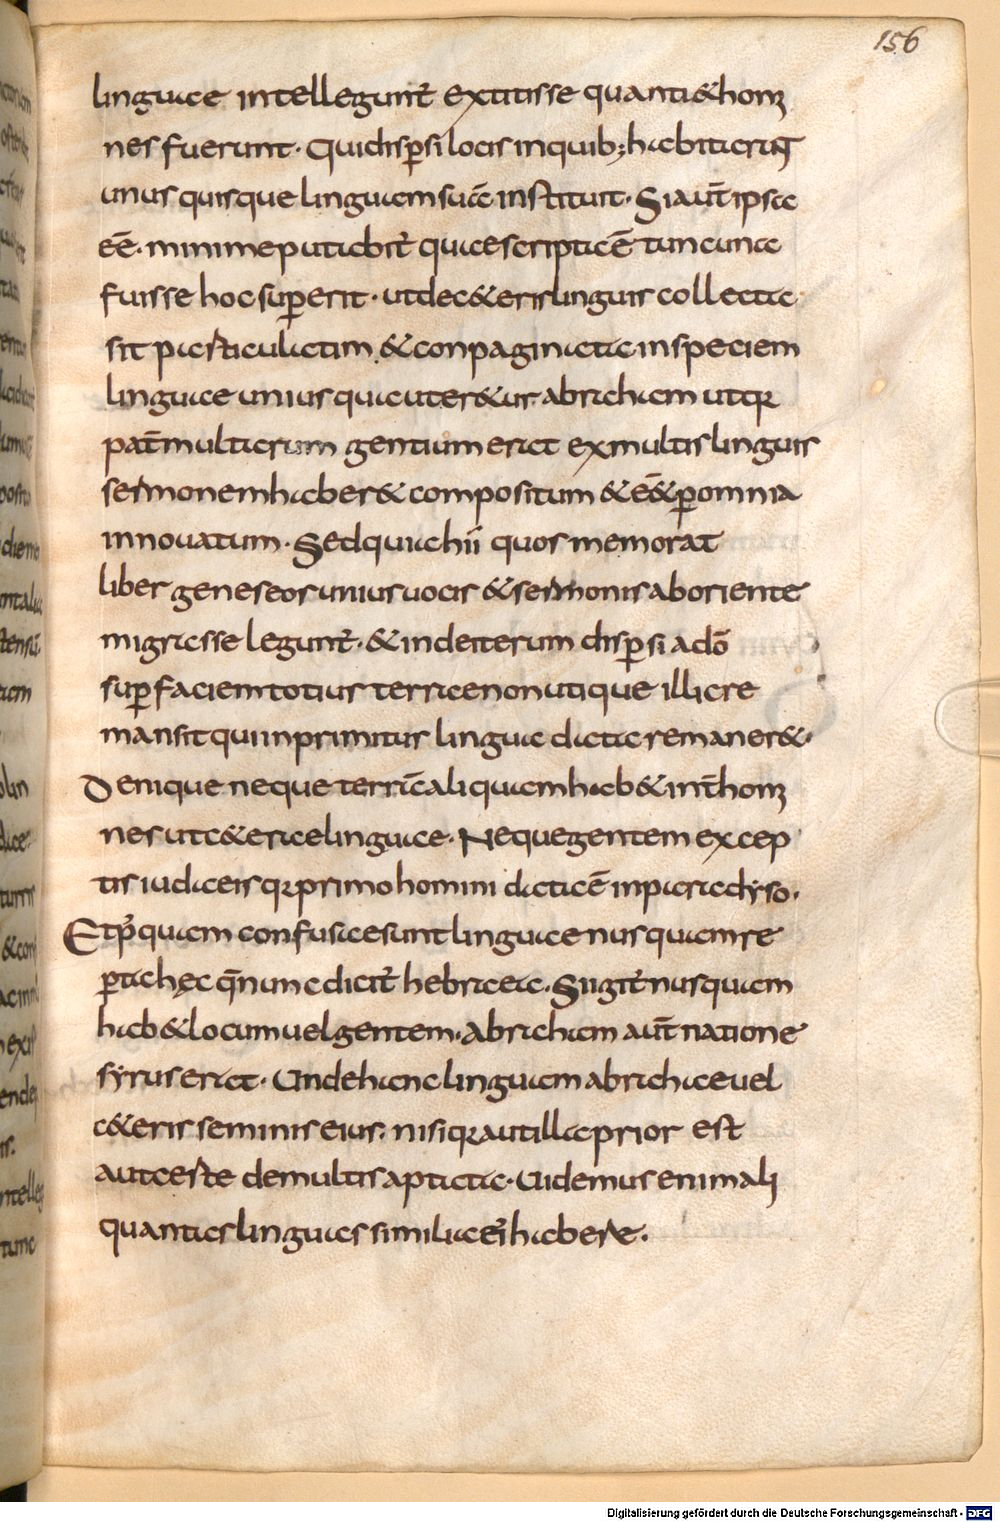 156
linguae intellegunt̃ extitisse quanti & hom
nes fuerunt. Qui dispersi locis in quib; habitarũt
unus quisque linguam suā instituit. Si aut̃ ipsa
eē. minime putabit̃ quae scripta ē tunc una
fuisse hoc supererit. ut de c&eris linguis collecta
sit particulatim. & conpaginata in speciem
linguae unius quia uter&ur abraham utq;
pat̃ multarum gentium erat ex multis linguis
sermonem haber& compositum & e& p omnia
innouatum. Sed quia hii quos memorat
liber geneseos unius uocis & sermonis ab oriente
migrasse legunt̃. & inde iterum dispersi a dō
sup faciem totius terrae non utique illa re
mansit qui inprimitus lingua dicta remaner&.
Denique neque terrā aliquam hab& int̃ hom
nes ut c&erae linguae. Neque gentem excep
tis iudaeis q; primo homini data ē in paradyso.
Et p̃quam confusae sunt linguae nusquam re
perta hęc q̄ nunc dicit̃ hebraea. Si igit̃ nusquam
hab& locum uel gentem. Abraham aut̃ natione
syrus erat. Unde hanc linguam abrahae uel
c&eris seminis eius. nisi q; aut illa prior est
aut ceste de multis aptata. Uidemus enim ali
quantas linguas simili aeĩ habere.
Digitalisierung gefördert durch die Deutsche Forschungsgemeinschaft - DFG